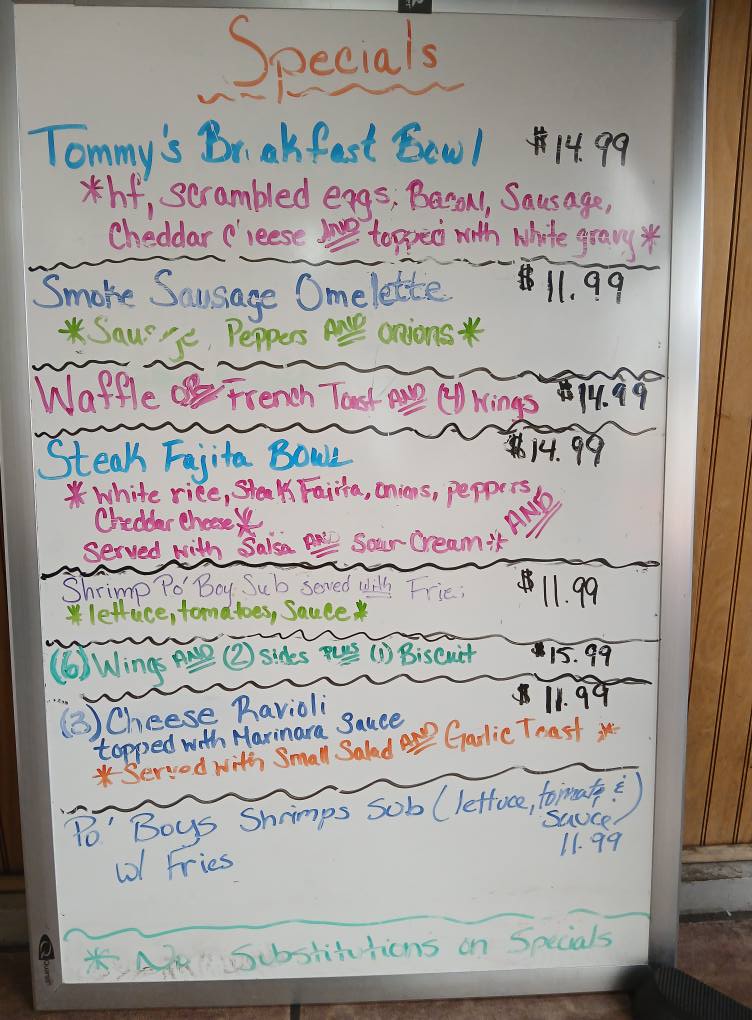 Specials
Tommy's Breakfast Bowl $14.99
*hf, scrambled eggs, Bacon, Sausage,
Cheddar Cheese AND topped with white gravy*
Smoke Sausage Omelette $11.99
*Sausage, Peppers AND onions*
Waffle OR French Toast AND (4) Wings $14.99
Steak Fajita Bowl $14.99
*white rice, Steak Fajita, onions, peppers, AND
Cheddar Cheese*
Served with Salsa AND Sour Cream*
Shrimp Po' Boy Sub served with Fries $11.99
*lettuce, tomatoes, Sauce*
(6) Wings AND (2) sides PLUS (1) Biscuit $15.99
(3) Cheese Ravioli $11.99
topped with Marinara Sauce
*Served with Small Salad AND Garlic Toast *
Po' Boys Shrimps Sub (lettuce, tomato, &
Sauce)
w/ Fries 11.99
* No Substitutions on Specials
Quartet